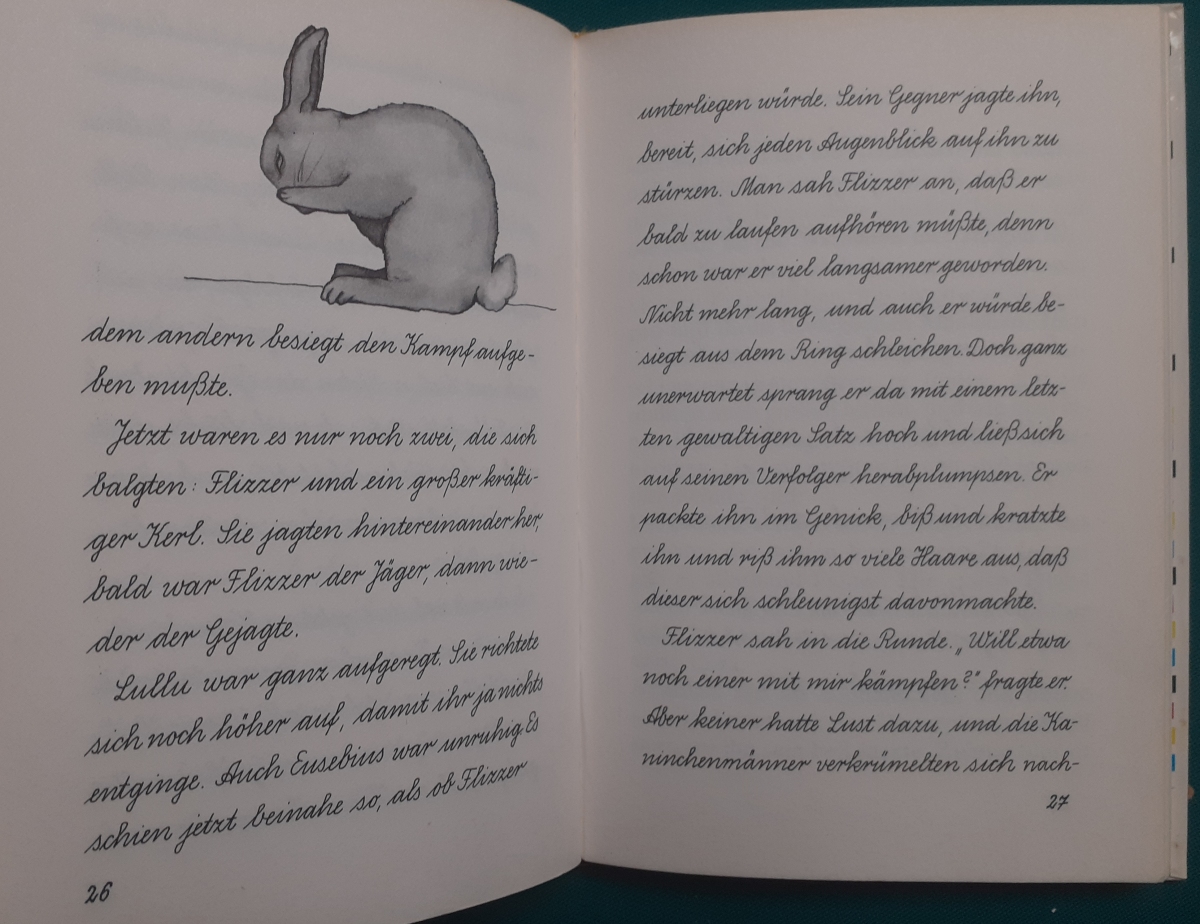 dem andern besiegt den Kampf aufge-
ben mußte.
Jetzt waren es nur noch zwei, die sich
balgten: Flizzer und ein großer kräfti-
ger Kerl. Sie jagten hintereinander her,
bald war Flizzer der Jäger, dann wie-
der der Gejagte.
Lullu war ganz aufgeregt. Sie richtete
sich noch höher auf, damit ihr ja nichts
entginge. Auch Eusebius war unruhig. Es
schien jetzt beinahe so, als ob Flizzer
26
unterliegen würde. Sein Gegner jagte ihn,
bereit, sich jeden Augenblick auf ihn zu
stürzen. Man sah Flizzer an, daß er
bald zu laufen aufhören müßte, denn
schon war er viel langsamer geworden.
Nicht mehr lang, und auch er würde be-
siegt aus dem Ring schleichen. Doch ganz
unerwartet sprang er da mit einem letz-
ten gewaltigen Satz hoch und ließ sich
auf seinen Verfolger herabplumpsen. Er
packte ihn im Genick, biß und kratzte
ihn und riß ihm so viele Haare aus, daß
dieser sich schleunigst davonmachte.
Flizzer sah in die Runde. „Will etwa
noch einer mit mir kämpfen?" fragte er.
Aber keiner hatte Lust dazu, und die Ka-
ninchenmänner verkrümelten sich nach-
27